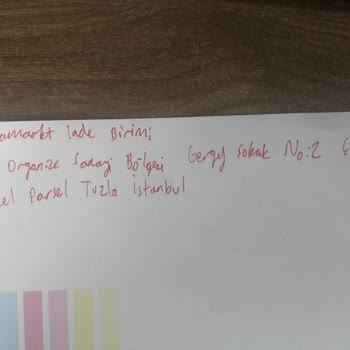 amarkt İade Birimi
Organize Sanayi Bölgesi Gergef Sokak No:2
el Parsel Tuzla İstanbul